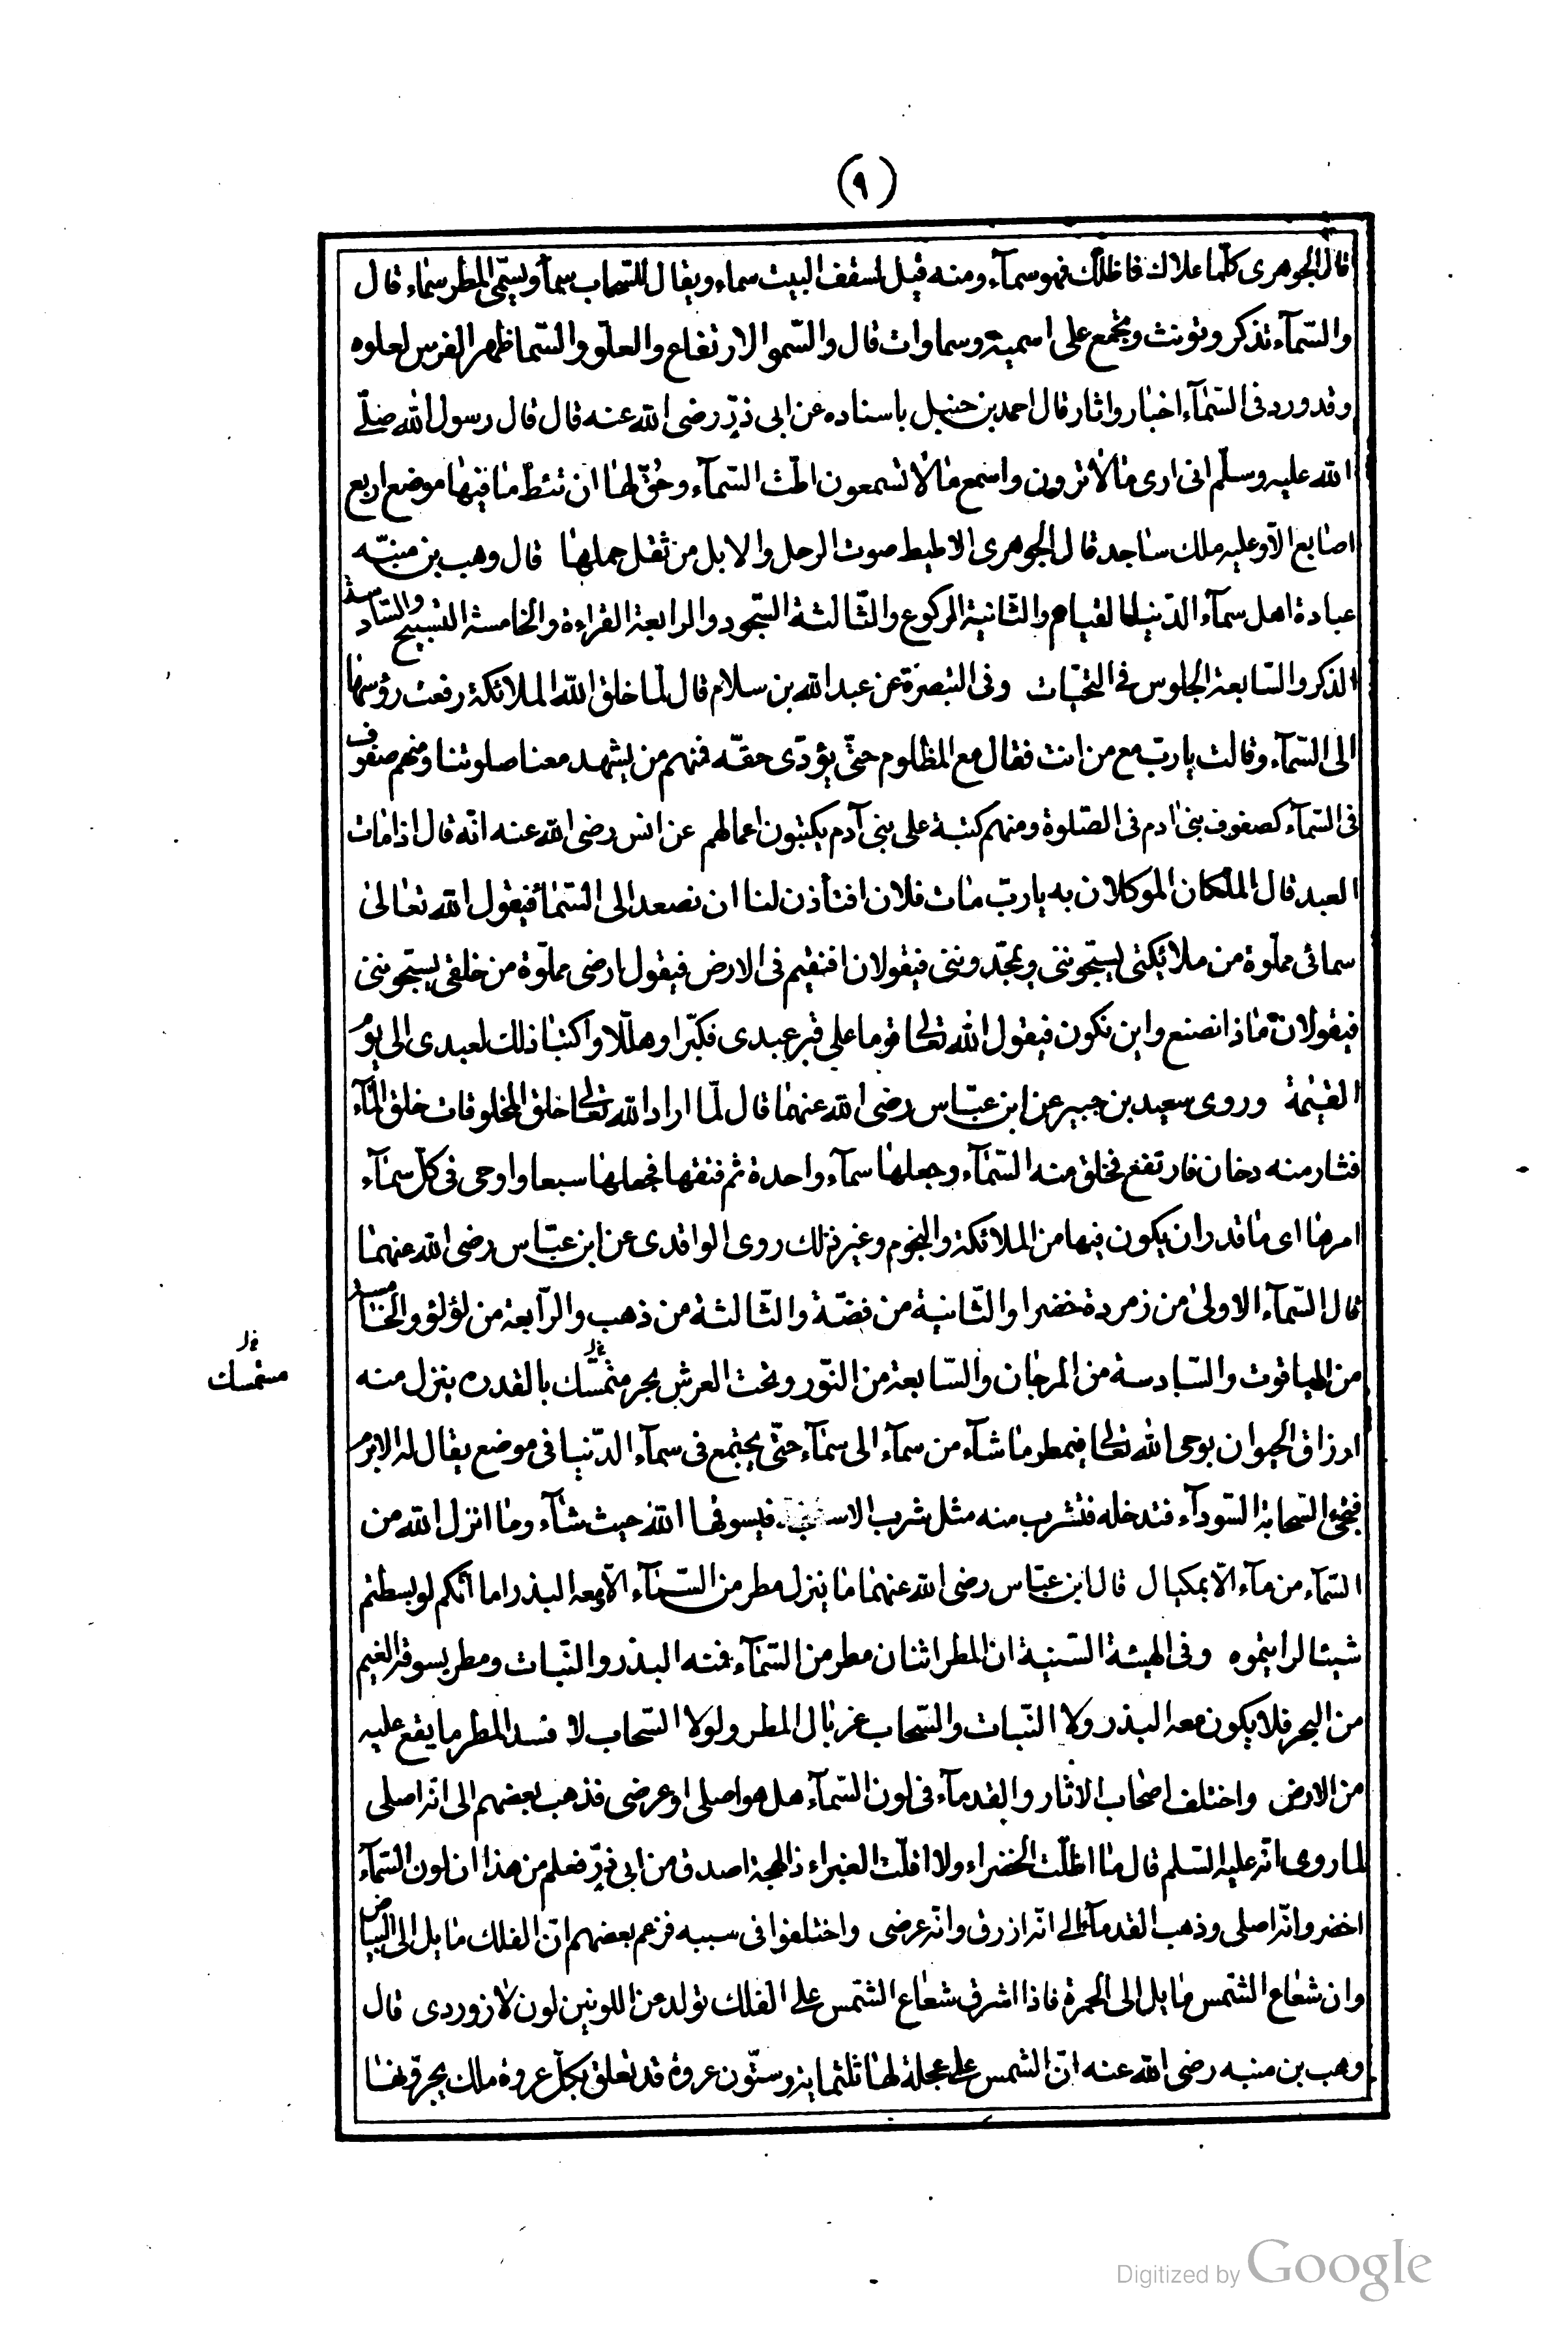 (٩)
قال الجوهرى كلّما علاك فاظلّك فهو سمآء ومنه قيل لسقف البيت سماء ويقال للسّحاب سمآ ويسمّى المطر سمٰاء قال
والسّمآء تذكر وتونث وتجمع على اسمية وسماوات قال والسّمو الارتفاع والعلّو والسّما ظهر الفرس لعلوه
وقد ورد فى السّمٰآء اخبٰار واثار قال احمد بن حنبل باسناده عن ابى ذرّ رضى الله عنه قال قال رسول الله صلّے
الله عليه وسلّم انى ارى مٰا لٰا ترون واسمع مٰا لٰا تسمعون اطّت السّمآء وحُقّ لهٰا ان تئطّ مٰا فيهٰا موضع اربع
اصٰابع الّا وعليه ملك سٰاجد قال الجوهرى الاطيط صوت الرحل والابل من ثقل حملهٰا قال وهب بن منبّه
عبادة اهل سمآء الدّنيا القيام والثّانية الركوع والثّالثة السّجود والرابعة القراءة والخامسة التسبيح والسّادسة
الذكر والسّابعة الجلوس فى التحيّات وفى التبصرة عن عبد الله بن سلام قال لمّا خلق الله الملائكة رفعت رؤسهٰا
الى السّمآء وقالت يا ربّ مع من انت فقال مع المظلوم حتّى يؤدّى حقّه فمنهم من يشهد معنا صلوتنا ومنهم صفوف
فى السّمآء كصفوف بنى ادم فى الصّلوة ومنهم كتبة على بنى آدم يكتبون اعمالهم عن انس رضى الله عنه انّه قال اذا مٰات
العبد قال الملكان الموكلان به يا ربّ مٰات فلان افتأذن لنا ان نصعد الى السّمٰآء فيقول الله تعٰالىٰ
سمائى مملّوة من ملائكتى يسبّحوننى ويمجّدوننى فيقولان افنقيم فى الارض فيقول ارضى مملّوة من خلقى يسبّحوننى
فيقولان مٰاذا نصنع واين نكون فيقول الله تعالى قوما على قبر عبدى فكبّرا وهلّلا واكتبٰا ذلك لعبدى الى يوم
القيٰمة وروى سعيد بن جبير عن ابن عبّاس رضى الله عنهمٰا قال لمّا اراد الله تعالى خلق المخلوقات خلق المٰآء
فثار منه دخان فارتفع فخلق منه السّمٰآء وجعلهٰا سمآء واحدة ثم فتقها فجعلهٰا سبعا واوحى فى كلّ سمٰآء
امرهٰا اى مٰا قدر ان يكون فيها من الملائكة والنجوم وغير ذلك روى الواقدى عن ابن عبّاس رضى الله عنهمٰا
قال السّمآء الاولىٰ من زمردة خضرا والثّانية من فضّة والثّالثة من ذهب والرّابعة من لؤلؤ والخٰامسة
من الياقوت والسّادسة من المرجٰان والسّابعة من النّور وتحت العرش بحر متمسّك بالقدره ينزل منه
نخ
مستمسك
ارزاق الحيوان يوحى الله تعالى فيمطر مٰا شآء من سمآء الى سمٰآء حتّى يجتمع فى سمآء الدّنيا فى موضع يقال له الابرم
فتجئ السّحابة السّودآء فتدخله فتشرب منه مثل شرب الاسفنجة فيسوقها الله حيث شٰآء ومٰا انزل الله من
السّمآء من مآء الّا بمكيال قال ابن عبّاس رضى الله عنهمٰا مٰا ينزل مطر من السّمٰآء الّا ومعه البذر اما انّكم لو بسطتم
شيئا لرايتموه وفى الهيئة السّنية ان المطر اثنان مطر من السّمٰآء فمنه البذر والنّبات ومطر يسوقه الغيم
من البحر فلا يكون معه البذر ولا النّبات والسّحاب غربٰال المطر ولولا السّحاب لا فسد المطر ما يقع عليه
من الارض واختلف اصحٰاب الاثار والقدمآء فى لون السّمآء هل هو اصلى او عرضى فذهب بعضهم الى انّه اصلى
لما روى انّه عليه السّلم قال مٰا اظلّت الخضراء ولا اقلّت الغبراء ذا لهجة اصدق من ابى ذرّ فعلم من هذا ان لون السّمآء
اخضر وانّه اصلى وذهب القدمآء الى انّه ازرق وانّه عرضى واختلفوا فى سببه فزعم بعضهم انّ الفلك مٰايل الى البياض
وان شعٰاع الشّمس مٰايل الى الحمرة فاذا اشرق شعٰاع الشّمس على الفلك تولد من اللونين لون لٰازوردى قال
وهب بن منبه رضى الله عنه انّ الشمس على عجلة لهٰا ثلثماية وستّون عروة قد تعلق بكلّ عروة ملك يجرّونهٰا
Digitized by Google